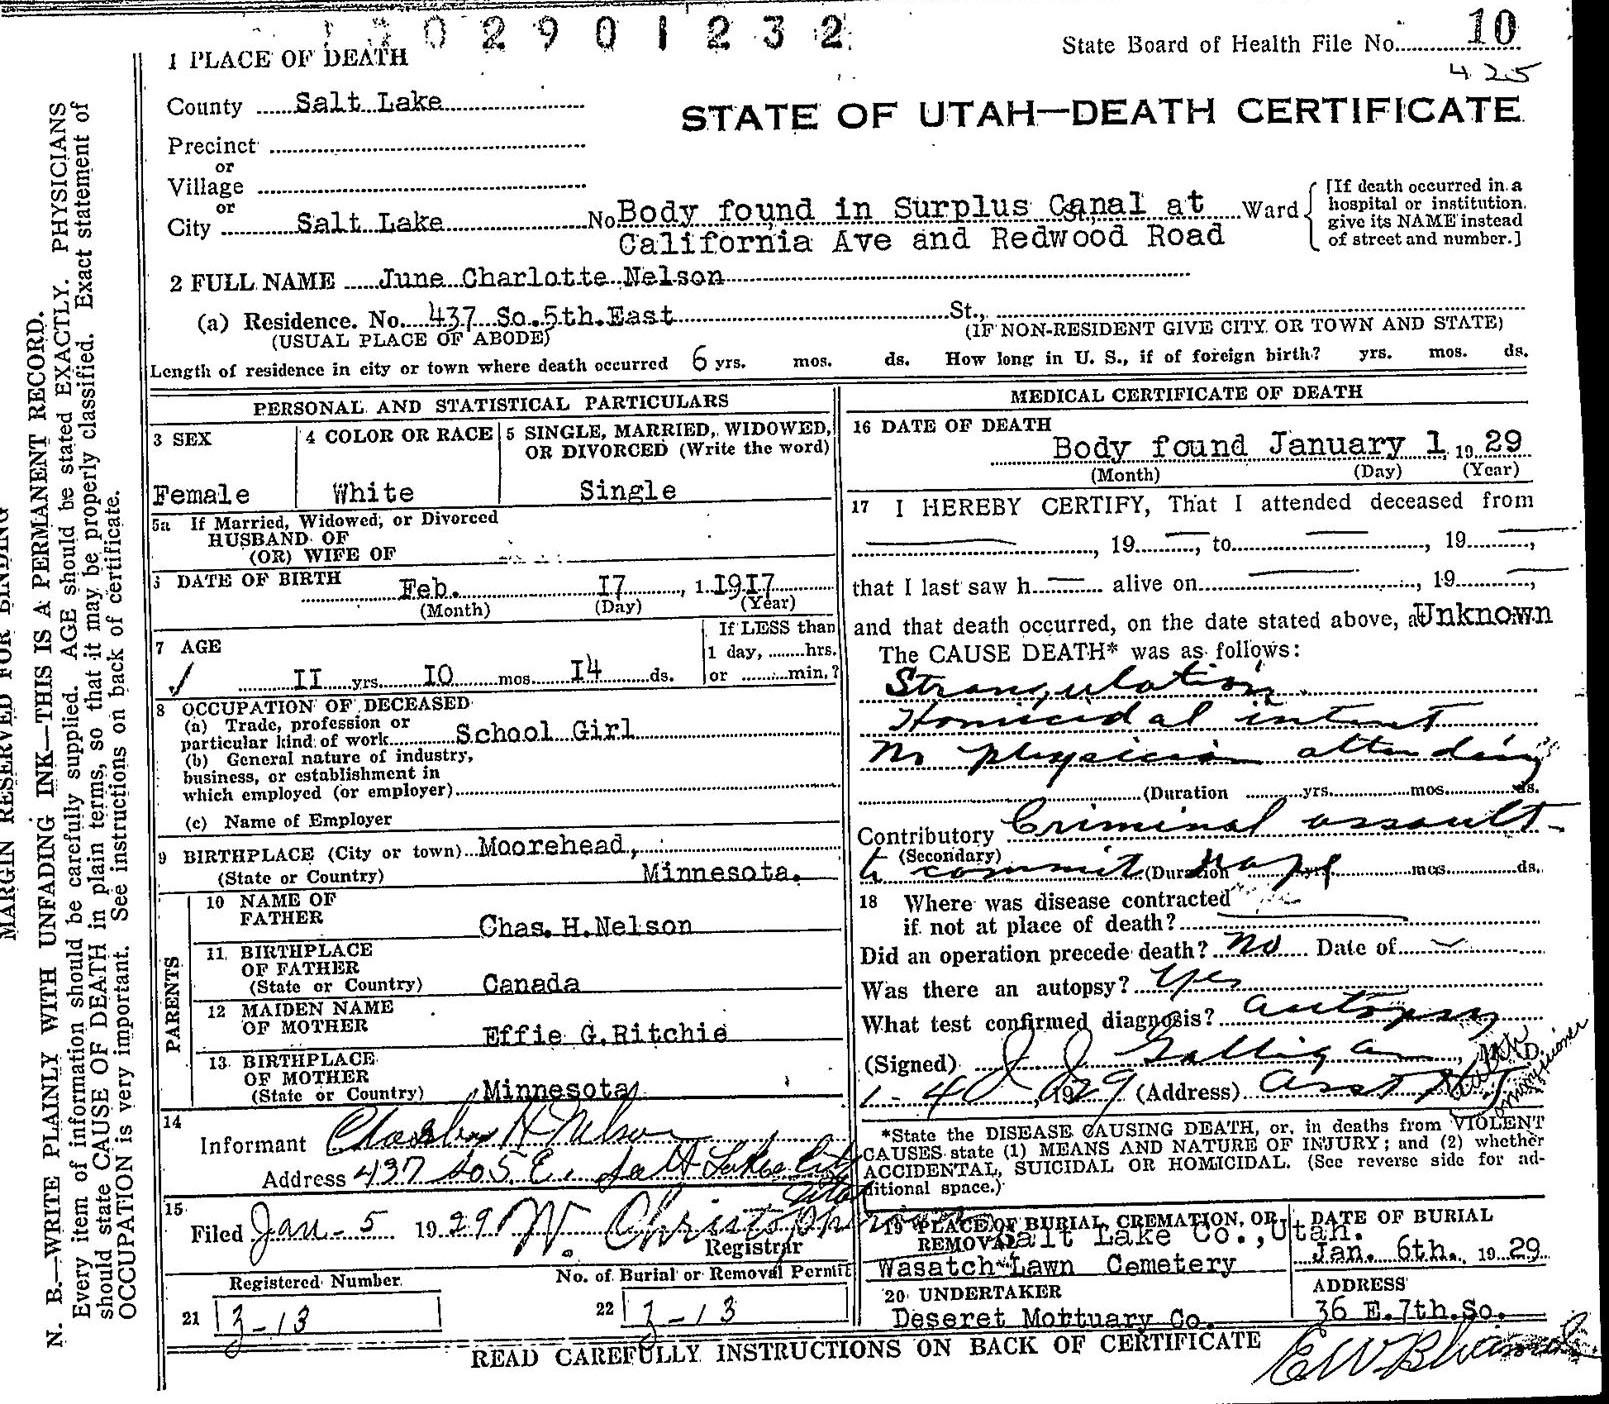 2 9 0 1 2 3 2
State Board of Health File No. 10
425
1 PLACE OF DEATH
County Salt Lake
STATE OF UTAH—DEATH CERTIFICATE
Precinct
or
Village
or
City Salt Lake No. Body found in Surplus Canal at Ward
California Ave and Redwood Road
[If death occurred in a
hospital or institution,
give its NAME instead
of street and number.]
2 FULL NAME June Charlotte Nelson
(a) Residence. No. 437 So. 5th. East St.,
(USUAL PLACE OF ABODE)
(IF NON-RESIDENT GIVE CITY OR TOWN AND STATE)
Length of residence in city or town where death occurred 6 yrs. mos. ds. How long in U. S., if of foreign birth? yrs. mos. ds.
PERSONAL AND STATISTICAL PARTICULARS
3 SEX
Female
4 COLOR OR RACE
White
5 SINGLE, MARRIED, WIDOWED,
OR DIVORCED (Write the word)
Single
5a If Married, Widowed, or Divorced
HUSBAND OF
(OR) WIFE OF
DATE OF BIRTH Feb. 17, 1 1917
(Month) (Day) (Year)
7 AGE
11 yrs. 10 mos. 14 ds.
If LESS than
1 day, hrs.
or min.?
8 OCCUPATION OF DECEASED
(a) Trade, profession or
particular kind of work School Girl
(b) General nature of industry,
business, or establishment in
which employed (or employer)
(c) Name of Employer
9 BIRTHPLACE (City or town) Moorehead,
(State or Country) Minnesota.
PARENTS
10 NAME OF
FATHER Chas. H. Nelson
11 BIRTHPLACE
OF FATHER
(State or Country) Canada
12 MAIDEN NAME
OF MOTHER Effie G. Ritchie
13 BIRTHPLACE
OF MOTHER
(State or Country) Minnesota
14
Informant Charles H Nelson
Address 437 So 5 E. Salt Lake City
Utah
15
Filed Jan - 5 1929 W. Christopherson
Registrar
Registered Number
21 Z-13
No. of Burial or Removal Permit
22 Z-13
MEDICAL CERTIFICATE OF DEATH
16 DATE OF DEATH
Body found January 1, 1929
(Month) (Day) (Year)
17 I HEREBY CERTIFY, That I attended deceased from
, 19 , to , 19 ,
that I last saw h alive on , 19 ,
and that death occurred, on the date stated above, at Unknown
The CAUSE DEATH* was as follows:
Strangulation
Homicidal intent
No physician attending
(Duration yrs. mos. ds.
Contributory Criminal assault
(Secondary)
to commit rape (Duration yrs. mos. ds.
18 Where was disease contracted
if not at place of death?
Did an operation precede death? No Date of
Was there an autopsy? Yes
What test confirmed diagnosis? Autopsy
(Signed) J J Galligan M.D.
1-4, 1929 (Address) Asst Health Commissioner
*State the DISEASE CAUSING DEATH, or, in deaths from VIOLENT
CAUSES state (1) MEANS AND NATURE OF INJURY; and (2) whether
ACCIDENTAL, SUICIDAL OR HOMICIDAL. (See reverse side for ad-
ditional space.)
19 PLACE OF BURIAL, CREMATION, OR
REMOVAL Salt Lake Co., Utah.
Wasatch Lawn Cemetery
DATE OF BURIAL
Jan. 6th. 1929
20 UNDERTAKER
Deseret Mortuary Co.
ADDRESS
36 E. 7th. So.
READ CAREFULLY INSTRUCTIONS ON BACK OF CERTIFICATE
MARGIN RESERVED FOR BINDING
N. B.—WRITE PLAINLY WITH UNFADING INK—THIS IS A PERMANENT RECORD.
Every item of information should be carefully supplied. AGE should be stated EXACTLY. PHYSICIANS
should state CAUSE OF DEATH in plain terms, so that it may be properly classified. Exact statement of
OCCUPATION is very important. See instructions on back of certificate.